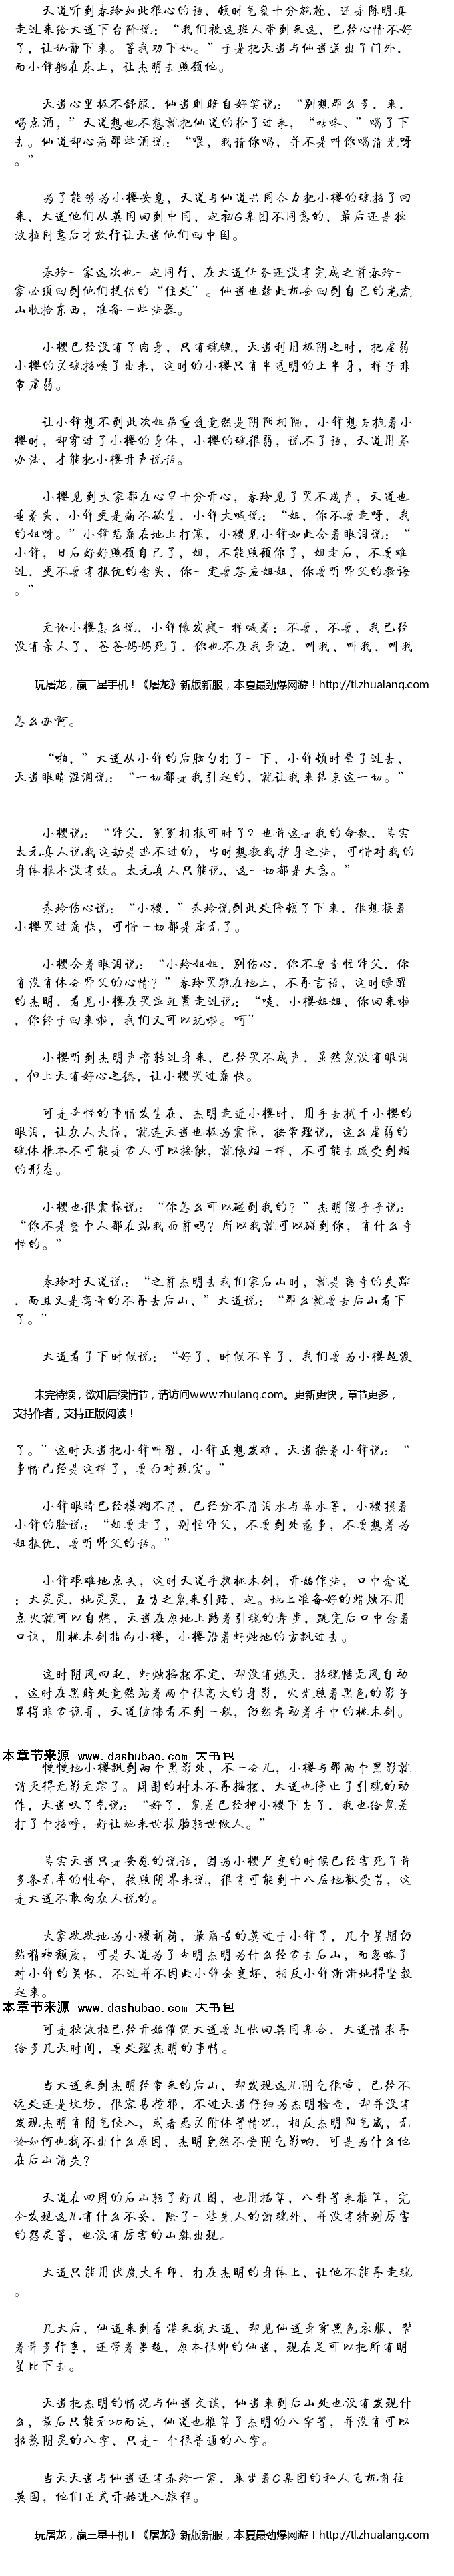 天道听到春玲如此狠心的话，顿时气氛十分尴尬，还是陈明真
走过来给天道下台阶说：“我们被这班人带到来这，已经心情不好
了，让她静下来。等我劝下她。”于是把天道与仙道送出了门外，
而小锋躺在床上，让杰明去照顾他。
天道心里极不舒服，仙道则暗自好笑说：“别想那么多，来，
喝点酒，”天道想也不想就把仙道的抢了过来，“咕咚、”喝了下
去。仙道却心痛那些酒说：“喂，我请你喝，并不是叫你喝清光呀
。”
为了能够为小樱安息，天道与仙道共同合力把小樱的魂招了回
来，天道他们从英国回到中国，起初G集团不同意的，最后还是狄
波拉同意后才放行让天道他们回中国。
春玲一家这次也一起同行，在天道任务还没有完成之前春玲一
家必须回到他们提供的“住处”。仙道也趁此机会回到自己的龙虎
山收拾东西，准备一些法器。
小樱已经没有了肉身，只有魂魄，天道利用极阴之时，把虚弱
小樱的灵魂招唤了出来，这时的小樱只有半透明的上半身，样子非
常虚弱。
让小锋想不到此次姐弟重逢竟然是阴阳相隔，小锋想去抱着小
樱时，却穿过了小樱的身体，小樱的魂很弱，说不了话，天道用尽
办法，才能把小樱开声说话。
小樱见到大家都在心里十分开心，春玲见了哭不成声，天道也
垂着头，小锋更是痛不欲生，小锋大喊说：“姐，你不要走呀，我
的姐呀。”小锋悲痛在地上打滚，小樱见小锋如此含着眼泪说：“
小锋，日后好好照顾自己了，姐，不能照顾你了，姐走后，不要难
过，更不要有报仇的念头，你一定要答应姐姐，你要听师父的教诲
。”
无论小樱怎么说，小锋像发疯一样喊着：不要，不要，我已经
没有亲人了，爸爸妈妈死了，你也不在我身边，叫我，叫我，叫我
玩屠龙，赢三星手机！《屠龙》新版新服，本夏最劲爆网游！http://tl.zhualang.com
怎么办啊。
“啪，”天道从小锋的后脑勺打了一下，小锋顿时晕了过去，
天道眼睛湿润说：“一切都是我引起的，就让我来结束这一切。”
小樱说：“师父，冤冤相报可时了？也许这是我的命数，其实
太元真人说我这劫是逃不过的，当时想教我护身之法，可惜对我的
身体根本没有效。太元真人只能说，这一切都是天意。”
春玲伤心说：“小樱，”春玲说到此处停顿了下来，很想搂着
小樱哭过痛快，可惜一切都是虚无了。
小樱含着眼泪说：“小玲姐姐，别伤心，你不要责怪师父，你
有没有体会师父的心情？”春玲哭跪在地上，不再言语，这时睡醒
的杰明，看见小樱在哭泣赶紧走过说：“咦，小樱姐姐，你回来啦
，你终于回来啦，我们又可以玩啦。呵”
小樱听到杰明声音转过身来，已经哭不成声，虽然鬼没有眼泪
，但上天有好心之德，让小樱哭过痛快。
可是奇怪的事情发生在，杰明走近小樱时，用手去拭干小樱的
眼泪，让众人大惊，就连天道也极为震惊，按常理说，这么虚弱的
魂体根本不可能是常人可以接触，就像烟一样，不可能去感受到烟
的形态。
小樱也很震惊说：“你怎么可以碰到我的？”杰明傻乎乎说：
“你不是整个人都在站我面前吗？所以我就可以碰到你，有什么奇
怪的。”
春玲对天道说：“之前杰明去我们家后山时，就是离奇的失踪
，而且又是离奇的不再去后山，”天道说：“那么就要去后山看下
了。”
天道看了下时候说：“好了，时候不早了，我们要为小樱超渡
未完待续，欲知后续情节，请访问www.zhulang.com。更新更快，章节更多，
支持作者，支持正版阅读！
了。”这时天道把小锋叫醒，小锋正想发难，天道按着小锋说：“
事情已经是这样了，要面对现实。”
小锋眼睛已经模糊不清，已经分不清泪水与鼻水等，小樱摸着
小锋的脸说：“姐要走了，别怪师父，不要到处惹事，不要想着为
姐报仇，要听师父的话。”
小锋艰难地点头，这时天道手执桃木剑，开始作法，口中念道
：天灵灵，地灵灵，五方之鬼来引路，起。地上准备好的蜡烛不用
点火就可以自燃，天道在原地上踏着引魂的舞步，跳完后口中念着
口诀，用桃木剑指向小樱，小樱沿着蜡烛地的方飘过去。
这时阴风四起，蜡烛摇摇不定，却没有熄灭，招魂幡无风自动
，这时在黑暗处竟然站着两个很高大的身影，火光照着黑色的影子
显得非常诡异，天道仿佛看不到一般，仍然舞动着手中的桃木剑。
本章节来源 www.dashubao.com 大书包
慢慢地小樱飘到两个黑影处，不一会儿，小樱与那两个黑影就
消灭得无影无踪了。周围的树木不再摇摆，天道也停止了引魂的动
作，天道叹了气说：“好了，鬼差已经押小樱下去了，我也给鬼差
打了个招呼，好让她来世投胎转世做人。”
其实天道只是安慰的说话，因为小樱尸变的时候已经害死了许
多条无辜的性命，按照阴界来说，很有可能到十八层地狱受苦，这
是天道不敢向众人说的。
大家默默地为小樱祈祷，最痛苦的莫过于小锋了，几个星期仍
然精神颓废，可是天道为了查明杰明为什么经常去后山，而忽略了
对小锋的关怀，不过并不因此小锋会变坏，相反小锋渐渐地得坚毅
起来。
本章节来源 www.dashubao.com 大书包
可是狄波拉已经开始催促天道要赶快回英国集合，天道请求再
给多几天时间，要处理杰明的事情。
当天道来到杰明经常来的后山，却发现这儿阴气很重，已经不
远处还是坟场，很容易撞邪，不过天道仔细为杰明检查，却并没有
发现杰明有阴气侵入，或者恶灵附体等情况，相反杰明阳气盛，无
论如何也找不出什么原因，杰明竟然不受阴气影响，可是为什么他
在后山消失？
天道在四周的后山转了好几圈，也用掐算，八卦等来推算，完
全发现这儿有什么不妥，除了一些先人的游魂外，并没有特别厉害
的怨灵等，也没有厉害的山魅出现。
天道只能用伏魔大手印，打在杰明的身体上，让他不能再走魂
。
几天后，仙道来到香港来找天道，却见仙道身穿黑色衣服，背
着许多行李，还带着墨超，原本很帅的仙道，现在足可以把所有明
星比下去。
天道把杰明的情况与仙道交谈，仙道来到后山处也没有发现什
么，最后只能无功而返，仙道也推算了杰明的八字等，并没有可以
招惹阴灵的八字，只是一个很普通的八字。
当天天道与仙道还有春玲一家，乘坐着G集团的私人飞机前往
英国，他们正式开始进入旅程。
玩屠龙，赢三星手机！《屠龙》新版新服，本夏最劲爆网游！http://tl.zhualang.com